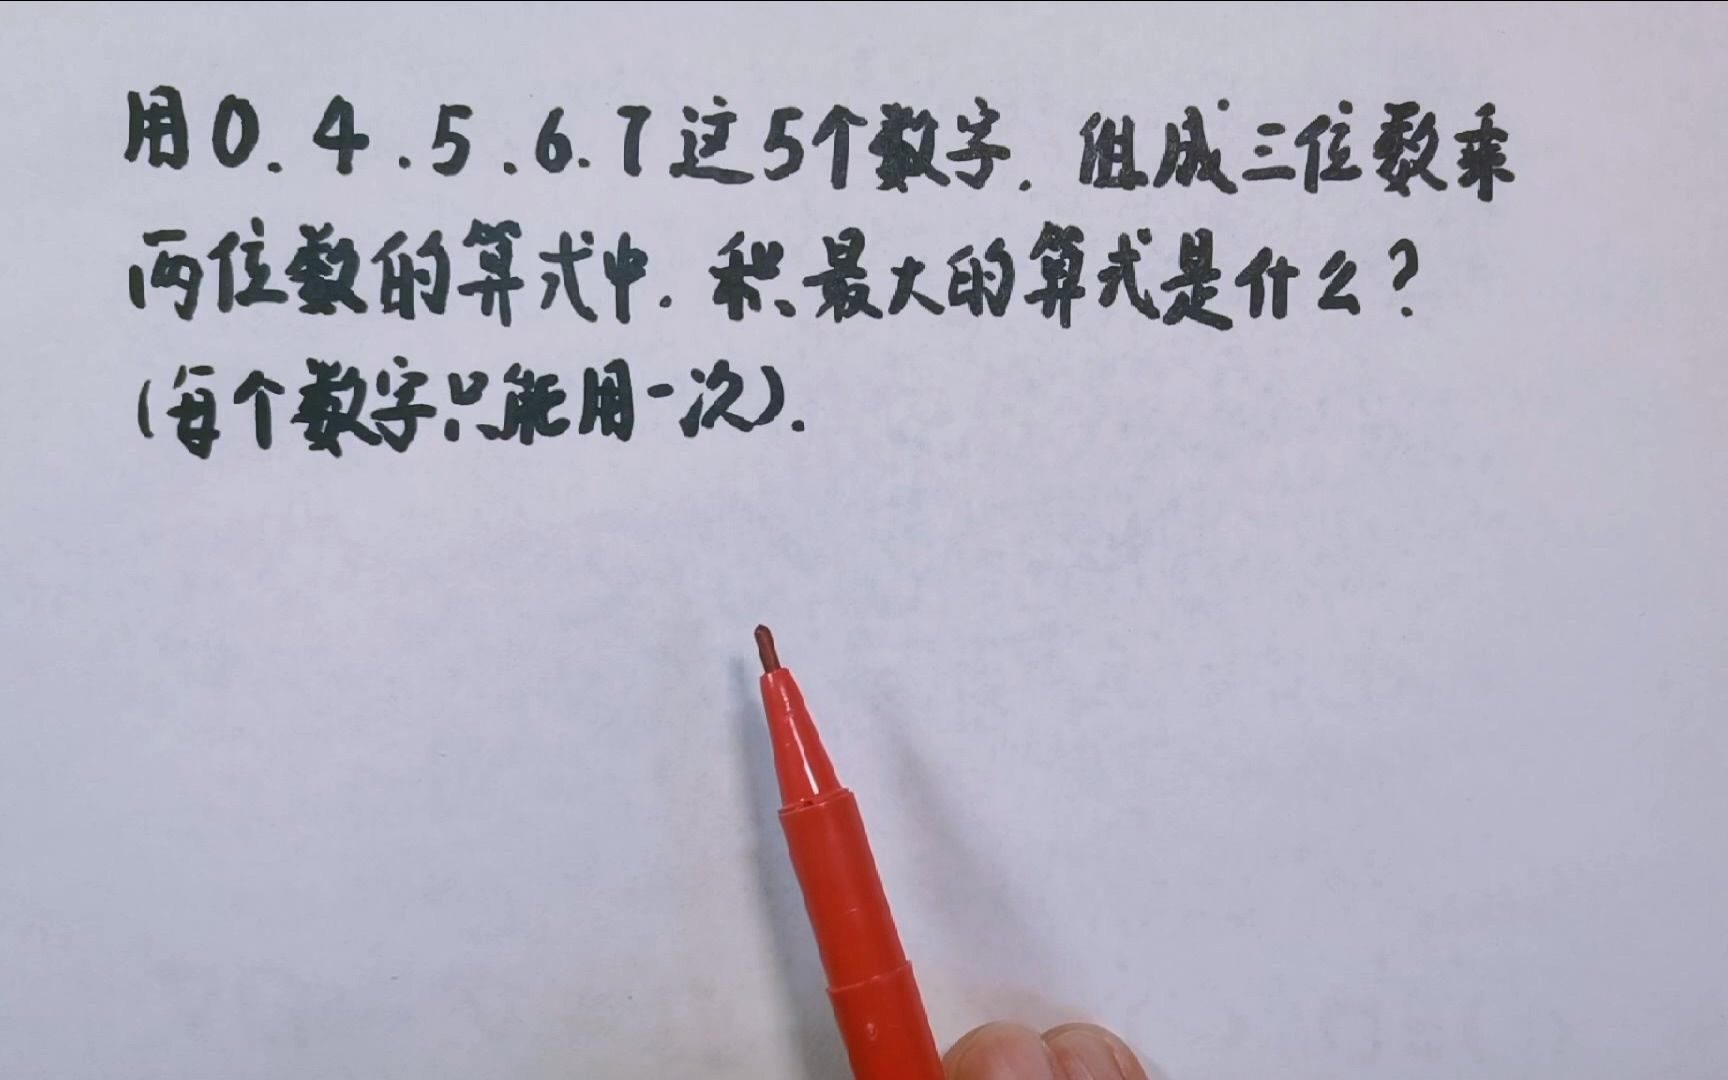 用0.4.5.6.7这5个数字.组成三位数乘
两位数的算式中.积最大的算式是什么?
(每个数字只能用一次).